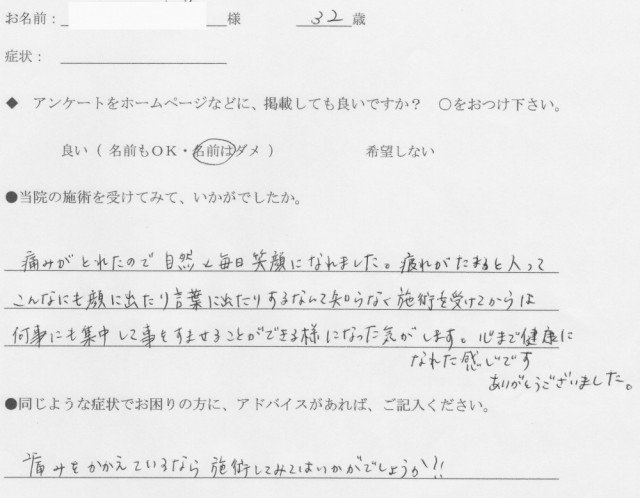 お名前： 様 32 歳
症状：
◆ アンケートをホームページなどに、掲載しても良いですか？ ○をおつけ下さい。
良い（ 名前もOK・名前はダメ ） 希望しない
●当院の施術を受けてみて、いかがでしたか。
痛みがとれたので自然と毎日笑顔になれました。疲れがたまると人って
こんなにも顔に出たり言葉に出たりするなんて知らなく施術を受けてからは
何事にも集中して事をすませることができる様になった気がします。心まで健康に
なれた感じです
ありがとうございました。
●同じような症状でお困りの方に、アドバイスがあれば、ご記入ください。
痛みをかかえているなら施術してみてはいかがでしょうか!!